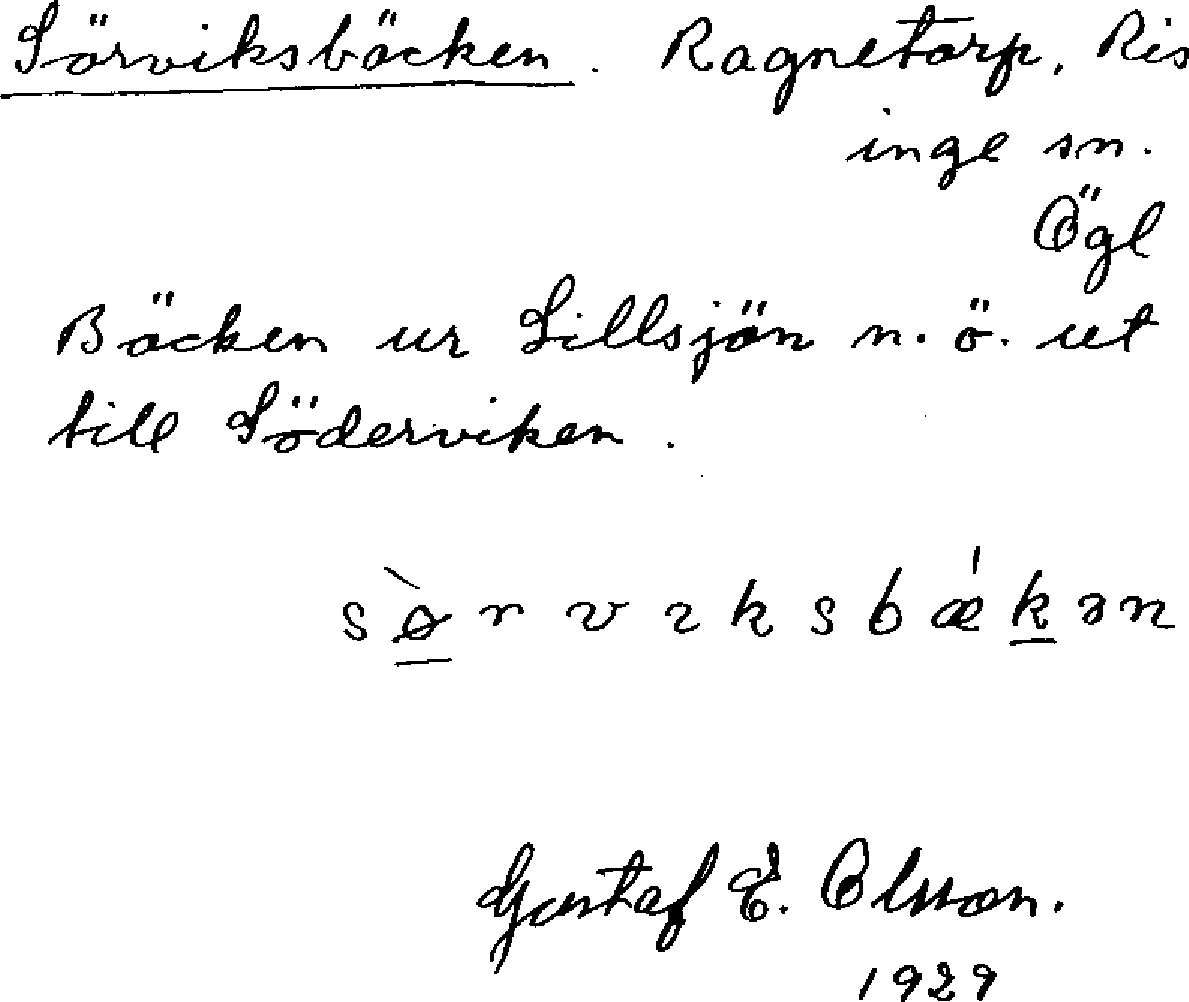 Sörviksbäcken. Ragnetorp, Ris
inge sn.
Ögl
Bäcken ur Lillsjön n.ö. ut
till Söderviken.
sø̀rvıksbǽkən
Gustaf E. Olsson.
1929